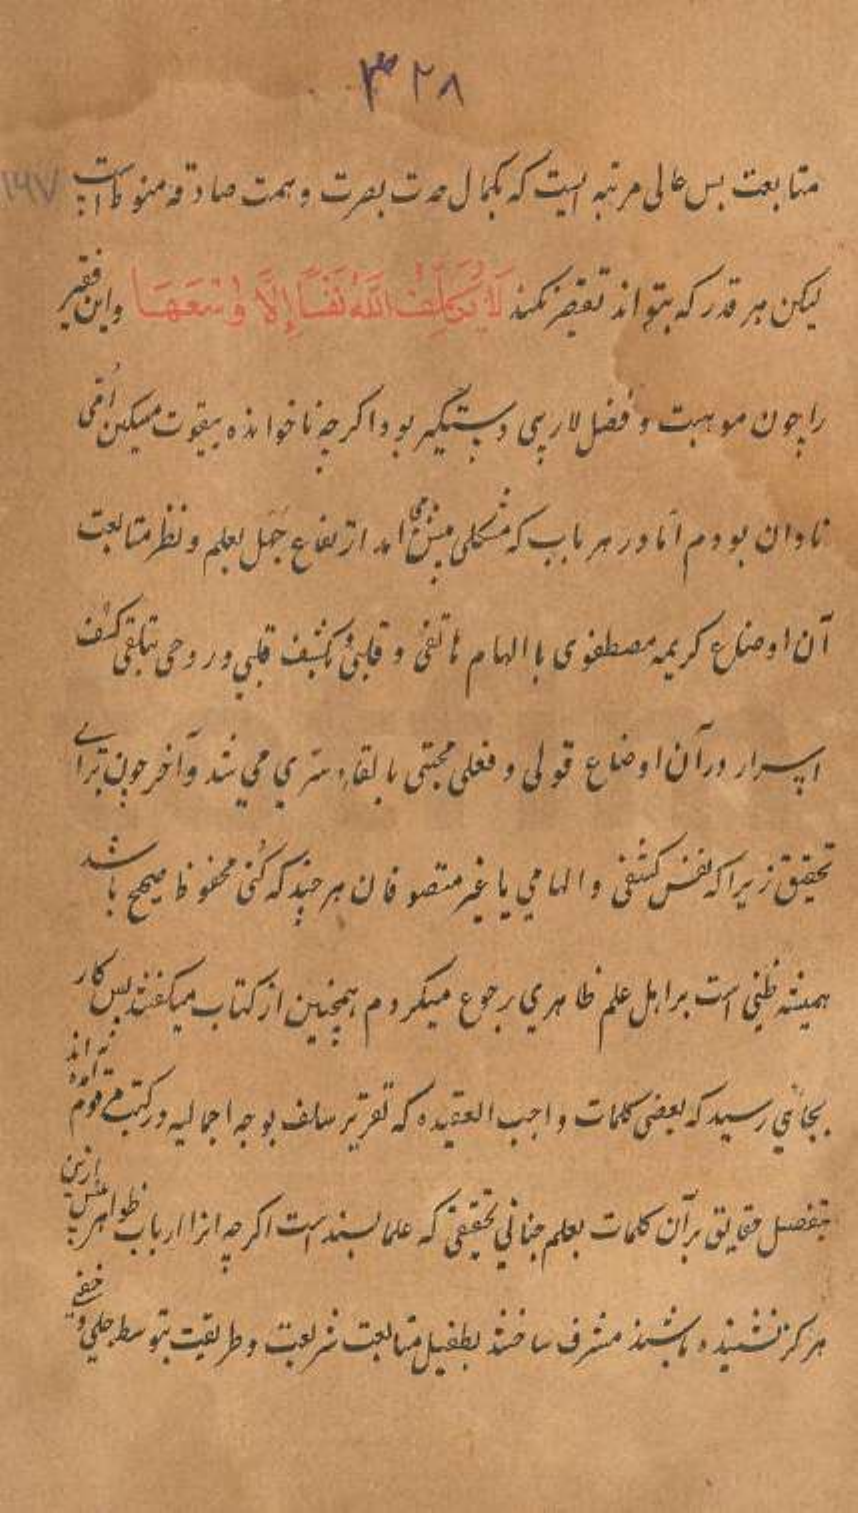 ۳۲۸
۱۹۷
متابعت بس عالی مرتبه ایست که بکمال حدت بصرت و همت صادقه منوط است
لیکن هر قدر که بتواند تقصیر نکند لَا یُکَلِّفُ اللَّهُ نَفْسًا إِلَّا وُسْعَهَا واین فقیر
را چون موهبت و فضل لاریبی دستگیر بود اکرچه ناخوانده بیقوت مسکین اُمّی
نادان بودم اما در هر باب که مشکلی پیش می امد ارتفاع جَهل بعلم و نظر متابعت
آن اوضاع کریمه مصطفوی با الهام هاتفی و قلبیٔ بکشف قلبي و روحی بتلقی کشف
اسرار و رآن اوضاع قولی و فعلی مجتبی بالقاء سرّي می شد و آخر چون برای
تحقیق زیرا که نفس کشفی و الهامي یا غیر متصوفان هر چند که کُنی محفوظ صحیح باشد
همیشه ظنّی است بر اهل علم ظاهري رجوع میکردم همچنین از کتاب میگفتند بس کار
بجائي رسید که بعضی کلمات واجب العقیده که تقریر سلف بوجه اجمالیه در کتب مرقوم نه اند
بتفصیل حقایق بر آن کلمات بعلم جنانی تحقیقی که علما بسند است اکرچه انرا ارباب ظواهر
هرکز نشنیده باشند مشرف ساختند بطفیل متابعت شریعت و طریقت بتوسط جلي و خفی